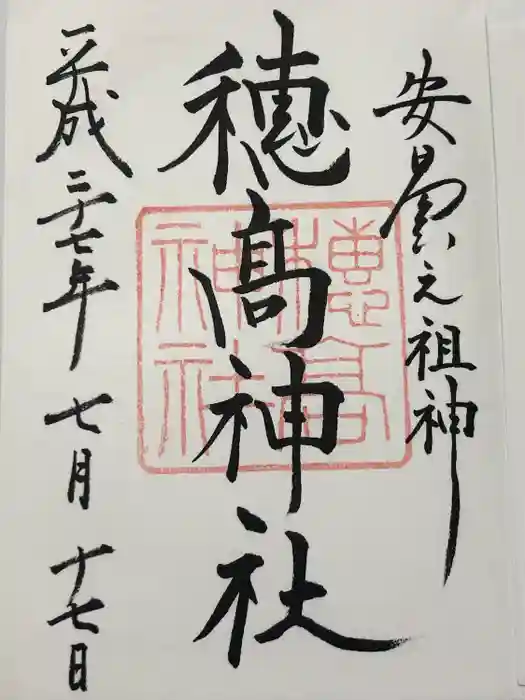 安曇之祖神
穂髙神社
穂高神社
平成二十七年七月十七日